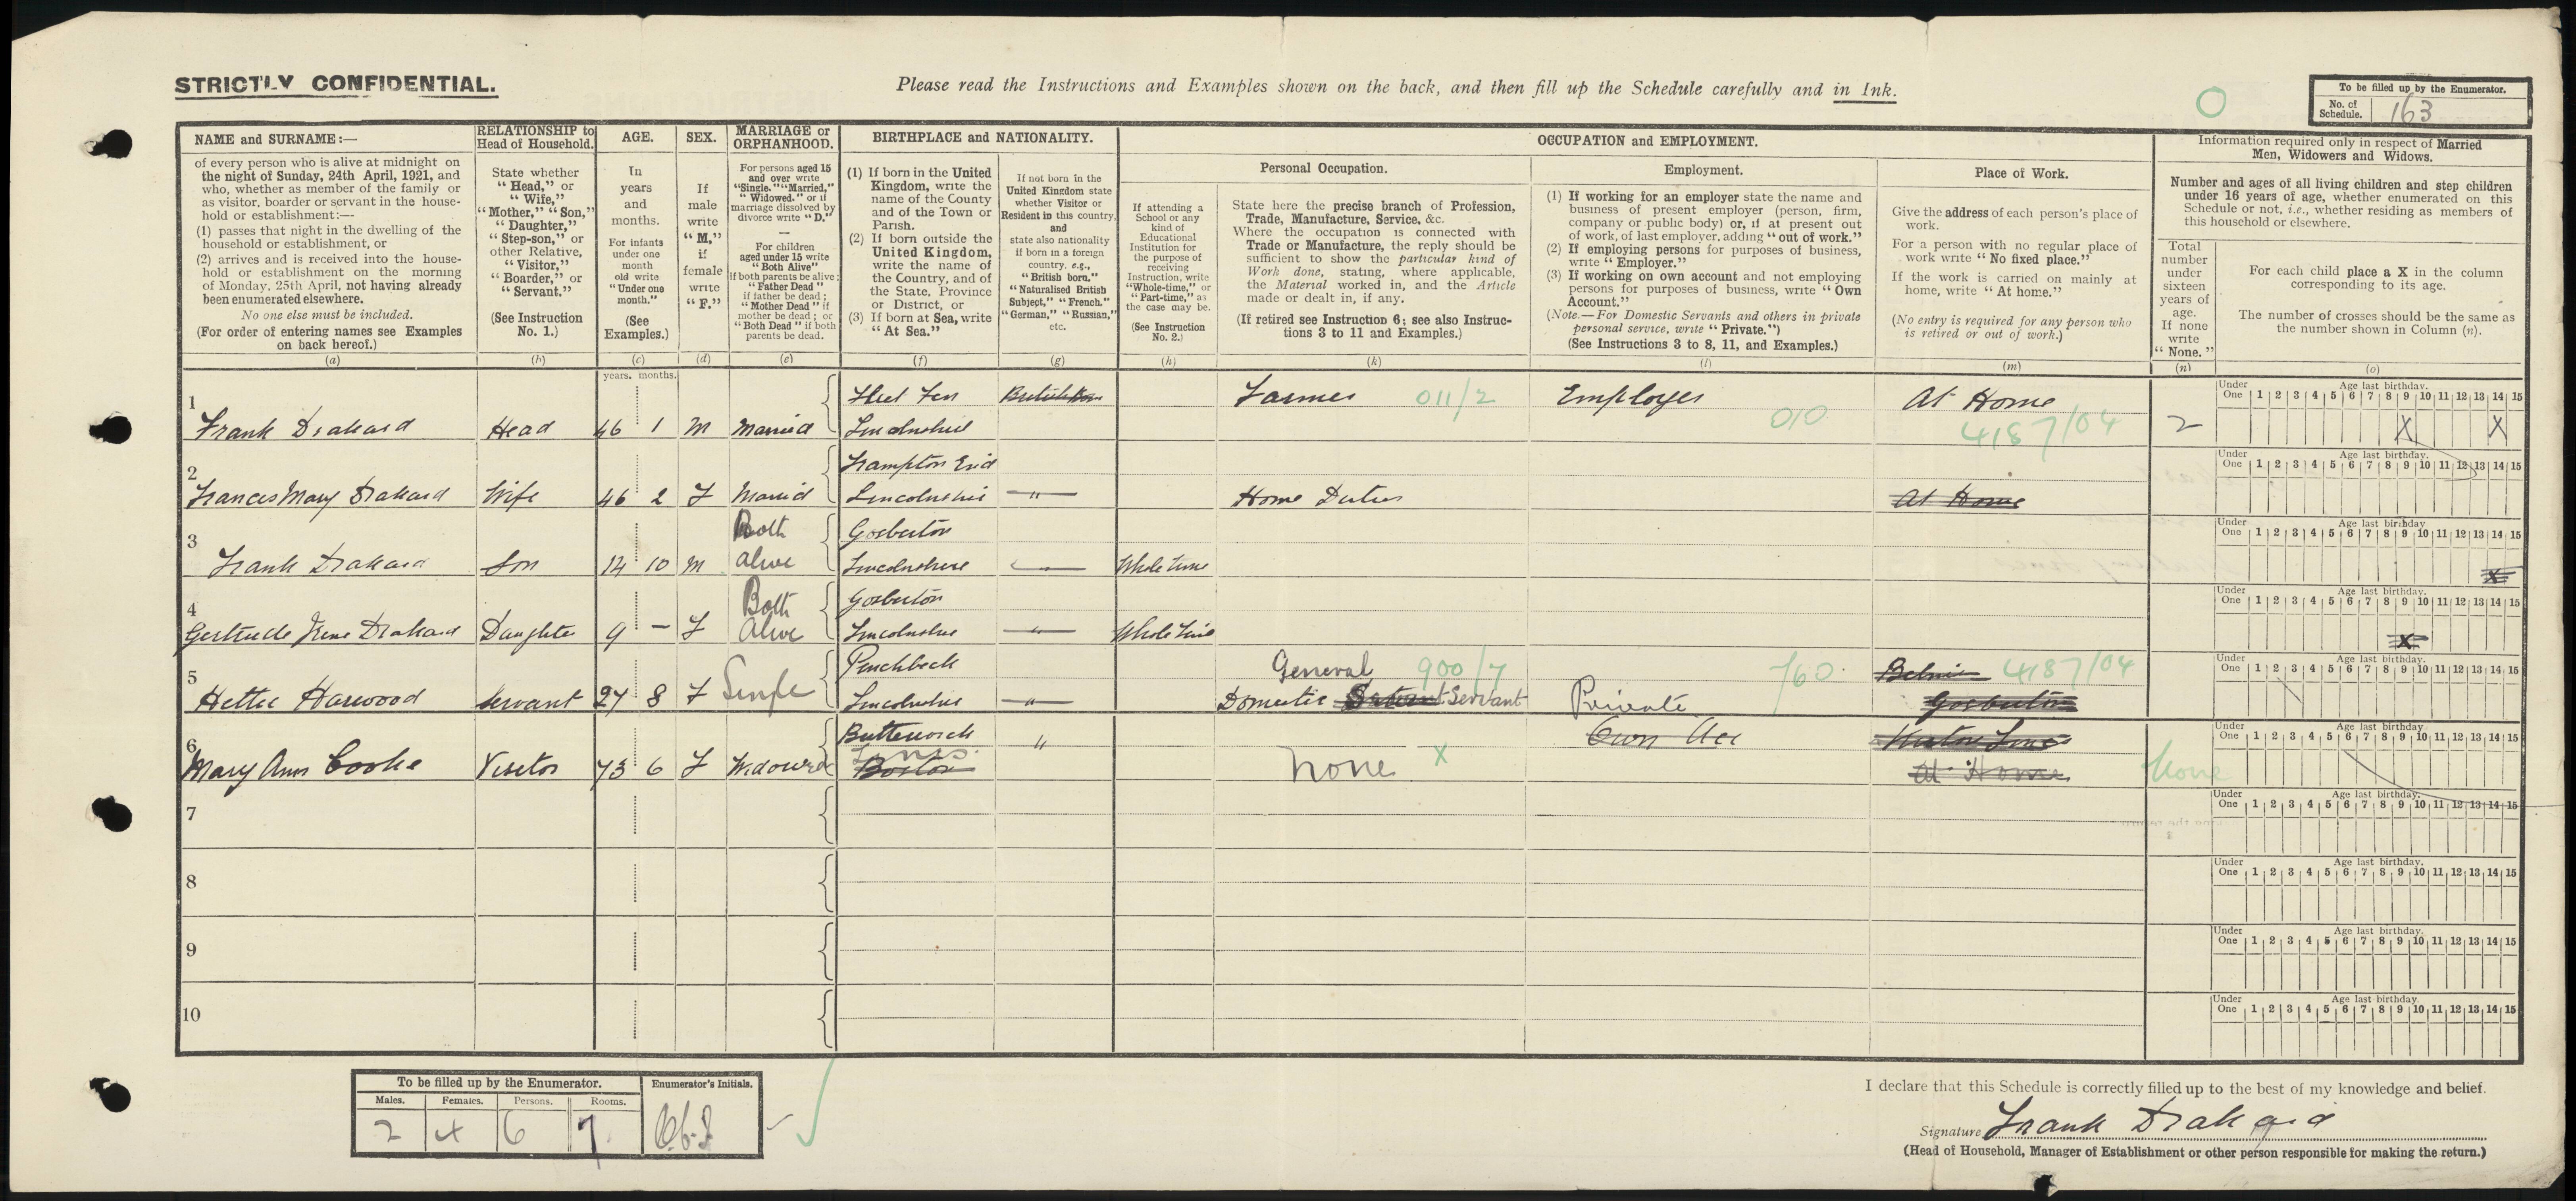 STRICTLY CONFIDENTIAL.
Please read the Instructions and Examples shown on the back, and then fill up the Schedule carefully and in Ink.
To be filled up by the Enumerator.
No. of Schedule. 163
NAME and SURNAME:—
of every person who is alive at midnight on
the night of Sunday, 24th April, 1921, and
who, whether as member of the family or
as visitor, boarder or servant in the house-
hold or establishment:—
(1) passes that night in the dwelling of the
household or establishment, or
(2) arrives and is received into the house-
hold or establishment on the morning
of Monday, 25th April, not having already
been enumerated elsewhere.
No one else must be included.
(For order of entering names see Examples
on back hereof.)
(a)
RELATIONSHIP to
Head of Household.
State whether
"Head," or
"Wife,"
"Mother," "Son,"
"Daughter,"
"Step-son," or
other Relative,
"Visitor,"
"Boarder," or
"Servant."
(See Instruction
No. 1.)
(b)
AGE.
In
years
and
months.
For infants
under one
month
old write
"Under one
month."
(See
Examples.)
(c)
SEX.
If
male
write
"M,"
if
female
write
"F."
(d)
MARRIAGE or
ORPHANHOOD.
For persons aged 15
and over write
"Single," "Married,"
"Widowed," or if
marriage dissolved by
divorce write "D."
—
For children
aged under 15 write
"Both Alive"
if both parents be alive;
"Father Dead"
if father be dead;
"Mother Dead" if
mother be dead; or
"Both Dead" if both
parents be dead.
(e)
BIRTHPLACE and NATIONALITY.
(1) If born in the United
Kingdom, write the
name of the County
and of the Town or
Parish.
(2) If born outside the
United Kingdom,
write the name of
the Country, and of
the State, Province
or District, or
(3) If born at Sea, write
"At Sea."
(f)
If not born in the
United Kingdom state
whether Visitor or
Resident in this country,
and
state also nationality
if born in a foreign
country, e.g.,
"British born,"
"Naturalised British
Subject," "French,"
"German," "Russian,"
etc.
(g)
OCCUPATION and EMPLOYMENT.
If attending a
School or any
kind of
Educational
Institution for
the purpose of
receiving
Instruction, write
"Whole-time," or
"Part-time," as
the case may be.
(See Instruction
No. 2.)
(h)
Personal Occupation.
State here the precise branch of Profession,
Trade, Manufacture, Service, &c.
Where the occupation is connected with
Trade or Manufacture, the reply should be
sufficient to show the particular kind of
Work done, stating, where applicable,
the Material worked in, and the Article
made or dealt in, if any.
(If retired see Instruction 6; see also Instruc-
tions 3 to 11 and Examples.)
(k)
Employment.
(1) If working for an employer state the name and
business of present employer (person, firm,
company or public body) or, if at present out
of work, of last employer, adding "out of work."
(2) If employing persons for purposes of business,
write "Employer."
(3) If working on own account and not employing
persons for purposes of business, write "Own
Account."
(Note.—For Domestic Servants and others in private
personal service, write "Private.")
(See Instructions 3 to 8, 11, and Examples.)
(l)
Place of Work.
Give the address of each person's place of
work.
For a person with no regular place of
work write "No fixed place."
If the work is carried on mainly at
home, write "At home."
(No entry is required for any person who
is retired or out of work.)
(m)
Information required only in respect of Married
Men, Widowers and Widows.
Number and ages of all living children and step children
under 16 years of age, whether enumerated on this
Schedule or not, i.e., whether residing as members of
this household or elsewhere.
Total
number
under
sixteen
years of
age.
If none
write
"None."
(n)
For each child place a X in the column
corresponding to its age.
The number of crosses should be the same as
the number shown in Column (n).
(o)
years. months.
Under One Age last birthday. 1 2 3 4 5 6 7 8 9 10 11 12 13 14 15
1 Frank Drakard Head 46 1 M Married Lincolnshire British Born Farmer 011/2 Employer 010 At Home 4187/04 2 X X
2 Frampton End
Frances Mary Drakard Wife 46 2 F Married Lincolnshire " Home Duties At Home
3 Both Gosberton
Frank Drakard Son 14 10 M alive Lincolnshire Whole time X
4 Both Gosberton
Gertrude Irene Drakard Daughter 9 — F Alive Lincolnshire " Whole Time X
5 Pinchbeck General 900/7 760 4187/04
Hettie Harwood Servant 27 8 F Single Lincolnshire " Domestic Servant Private Gosberton
6 Butterwick " Own Acc
Mary Ann Cooke Visitor 73 6 F Widowed Lincs Boston None X At Home None
7
8
9
10
To be filled up by the Enumerator.
Males. Females. Persons. Rooms. Enumerator's Initials.
2 4 6 7
I declare that this Schedule is correctly filled up to the best of my knowledge and belief.
Signature Frank Drakard
(Head of Household, Manager of Establishment or other person responsible for making the return.)